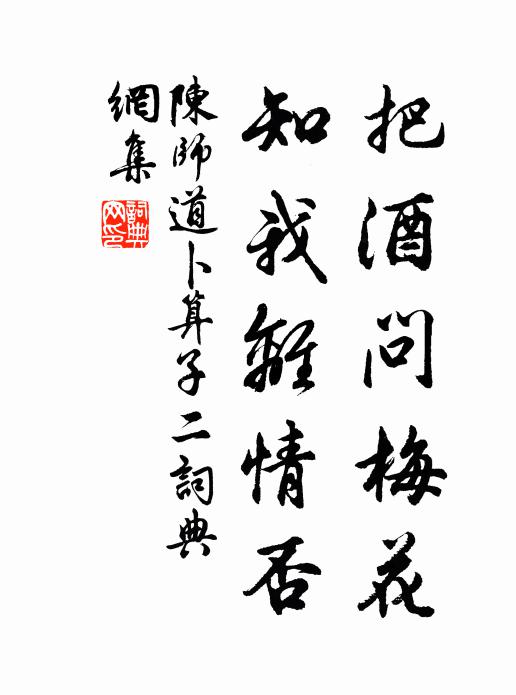 把酒問梅花
知我離情否
陳師道卜算子二詞典
網集
詞典
网印